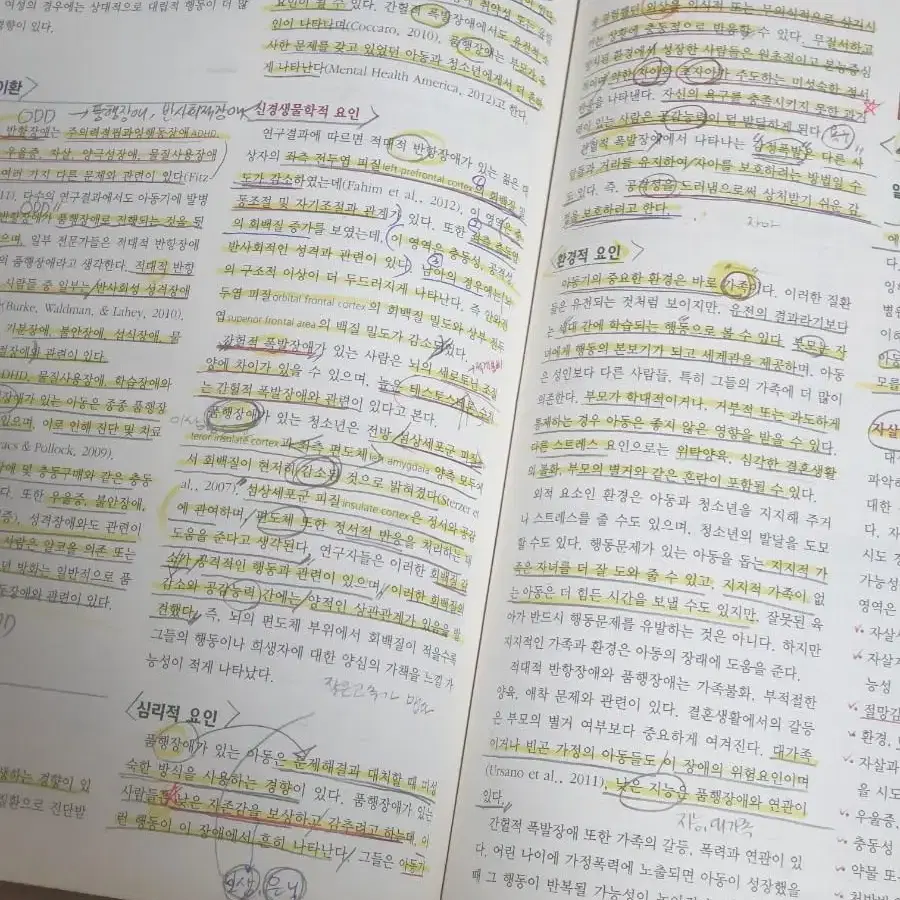 여성의 경우에는 상대적으로 대립적 행동이 더 많
이환
ODD → 품행장애, 반사회적장애
반항장애는 주의력결핍과잉행동장애ADHD,
우울증, 자살, 양극성장애, 물질사용장애
여러 가지 다른 문제와 관련이 있다(Fitz
다수의 연구결과에서도 아동기에 발병
ODD
반항장애가 품행장애로 진행되는 것을 된
으며, 일부 전문가들은 적대적 반항장애
의 품행장애라고 생각한다. 적대적 반항
사람들 중 일부는 반사회성 성격장애
(Burke, Waldman, & Lahey, 2010).
기분장애, 불안장애, 섭식장애, 물
관련이 있다.
ADHD, 물질사용장애, 학습장애와
장애가 있는 아동은 종종 품행장
있으며, 이로 인해 진단 및 치료
& Pollock, 2009).
및 충동구매와 같은 충동
다. 또한 우울증, 불안장애,
성격장애와도 관련이
사람은 알코올 의존 또는
방화는 일반적으로 품
동장애와 관련이 있다.
하는 경향이 있
질환으로 진단받
인이 나타나며(Coccaro, 2010), 품행장애는 부모가 유
사한 문제를 갖고 있었던 아동과 청소년에게서 더 흔하
게 나타난다(Mental Health America, 2012)고 한다.
신경생물학적 요인
연구결과에 따르면 적대적 반항장애가 있는 젊은 대
상자의 좌측 전두엽 피질left prefrontal cortex의 회백질 밀
도가 감소하였는데(Fahim et al., 2012), 이 영역은 충
동조절 및 자기조절과 관계가 있다. 또한 좌측 측두엽
의 회백질 증가를 보였는데, 이 영역은 충동성, 공격성,
반사회적인 성격과 관련이 있다. 남아의 경우에는
의 구조적 이상이 더 두드러지게 나타난다. 즉, 안와전
두엽 피질orbital frontal cortex의 회백질 밀도와 상부 전두
엽superior frontal area의 백질 밀도가 감소되었다.
간헐적 폭발장애가 있는 사람은 뇌의 세로토닌 조절
양에 차이가 있을 수 있으며, 높은 테스토스테론 수치
는 간헐적 폭발장애와 관련이 있다고 본다.
품행장애가 있는 청소년은 전방 섬상세포군 피질
terior insulate cortex과 좌측 편도체left amygdala 양측 모두에
서 회백질이 현저히 감소된 것으로 밝혀졌다(Sterzer et
al., 2007). 섬상세포군 피질insulate cortex은 정서와 공감
에 관여하며, 편도체 또한 정서적 반응을 처리하는 데
도움을 준다고 생각된다. 연구자들은 이러한 회백질 감
소가 공격적인 행동과 관련이 있으며, 이러한 회백질의
감소와 공감능력 간에는 양적인 상관관계가 있음을 발
견했다. 즉, 뇌의 편도체 부위에서 회백질이 적을수록
그들의 행동이나 희생자에 대한 양심의 가책을 느낄 가
능성이 적게 나타났다.
심리적 요인
품행장애가 있는 아동은 문제해결과 대처할 때 미성
숙한 방식을 사용하는 경향이 있다. 품행장애가 있는
사람들은 낮은 자존감을 보상하고 감추려고 하는데, 이
런 행동이 이 장애에서 흔히 나타난다. 그들은 아동기
하는 상황에 충동적으로 반응할 수 있다. 무질서하고
환경에서 성장한 사람들은 원초적이고 본능중심
약한 자아와 초자아가 주도하는 미성숙한 정서
반응을 나타낸다. 자신의 욕구를 충족시키지 못한 과거
력이 있는 사람은 공감능력이 덜 발달하게 된다.
간헐적 폭발장애에서 나타나는 감정폭발은 다른 사
람들과 거리를 유지하여 자아를 보호하려는 방법일 수
도 있다. 즉, 공격성을 드러냄으로써 상처받기 쉬운 감
정을 보호하려고 한다.
자아
환경적 요인
아동기의 중요한 환경은 바로 가족이다. 이러한 질환
들은 유전되는 것처럼 보이지만, 유전의 결과라기보다
는 세대 간에 학습되는 행동으로 볼 수 있다. 부모는 자
녀에게 행동의 본보기가 되고 세계관을 제공하며, 아동
은 성인보다 다른 사람들, 특히 그들의 가족에 더 많이
의존한다. 부모가 학대적이거나, 거부적 또는 과도하게
통제하는 경우 아동은 좋지 않은 영향을 받을 수 있다.
다른 스트레스 요인으로는 위탁양육, 심각한 결혼생활
의 불화, 부모의 별거와 같은 혼란이 포함될 수 있다.
외적 요소인 환경은 아동과 청소년을 지지해 주거
나 스트레스를 줄 수도 있으며, 청소년의 발달을 도모
할 수도 있다. 행동문제가 있는 아동을 돕는 지지적 가
족은 자녀를 더 잘 도와 줄 수 있고, 지지적 가족이 없
는 아동은 더 힘든 시간을 보낼 수도 있지만, 잘못된 육
아가 반드시 행동문제를 유발하는 것은 아니다. 하지만
지지적인 가족과 환경은 아동의 장래에 도움을 준다.
적대적 반항장애와 품행장애는 가족불화, 부적절한
양육, 애착 문제와 관련이 있다. 결혼생활에서의 갈등
은 부모의 별거 여부보다 중요하게 여겨진다. 대가족
이거나 빈곤 가정의 아동들도 이 장애의 위험요인이며
(Ursano et al., 2011), 낮은 지능은 품행장애와 연관이
있다.
지능, 대가족
간헐적 폭발장애 또한 가족의 갈등, 폭력과 연관이 있
다. 어린 나이에 가정폭력에 노출되면 아동이 성장했을
때 그 행동이 반복될 가능성이
자살
파악하
대한
다. 자
시도 경
가능성
영역은
자살시
자살
능성
절망감
환경,
자살과
을 시도
우울증,
충동성
약물 또